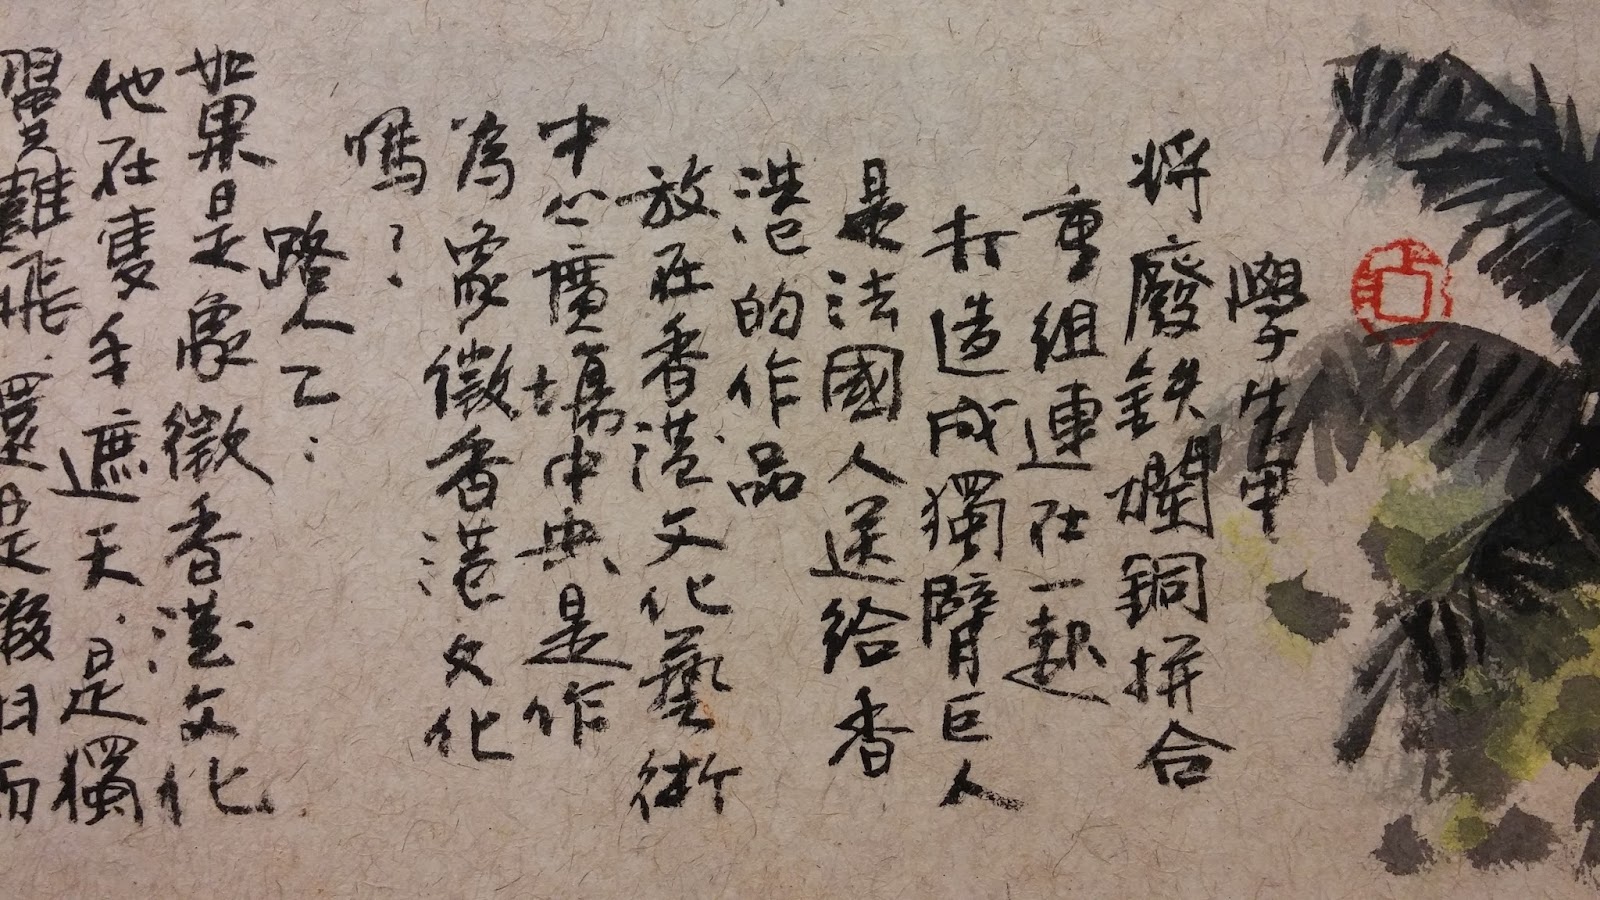 學生甲
將廢鉄爛銅拼合
重組連在一起
打造成獨臂巨人
是法國人送給香
港的作品
放在香港文化藝術
中心廣場中央是作
為象徵香港文化
嗎？
路人乙：
如果是象徵香港文化
他在隻手遮天、是獨
翼難飛、還是